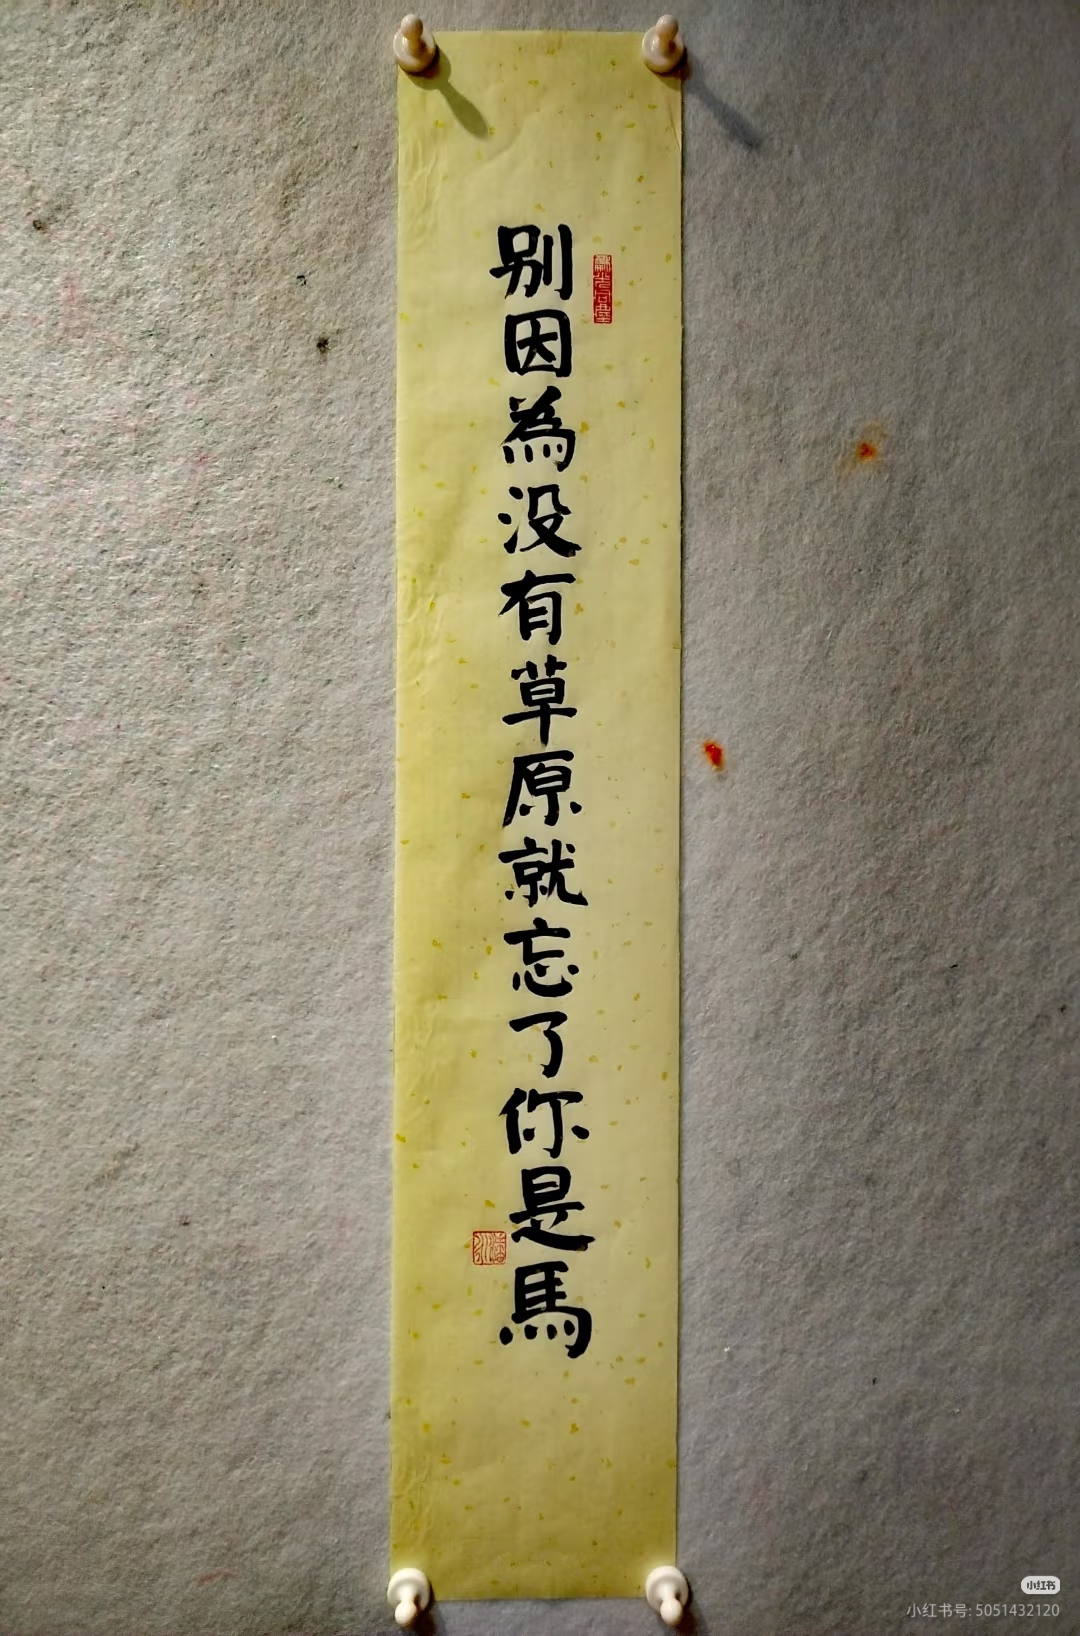 别因為没有草原就忘了你是馬
小红书
小红书号: 5051432120